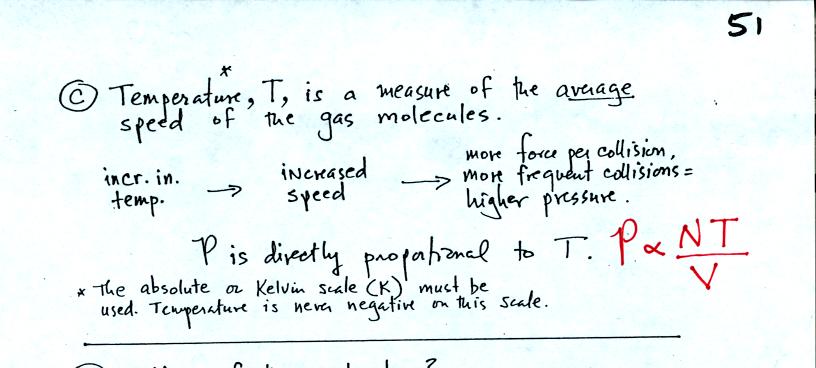 51
*
(C) Temperature, T, is a measure of the average
speed of the gas molecules.
incr. in. temp. → increased speed → more force per collision,
more frequent collisions =
higher pressure.
P is directly proportional to T. P ∝ NT / V
* The absolute or Kelvin scale (K) must be
used. Temperature is never negative on this scale.